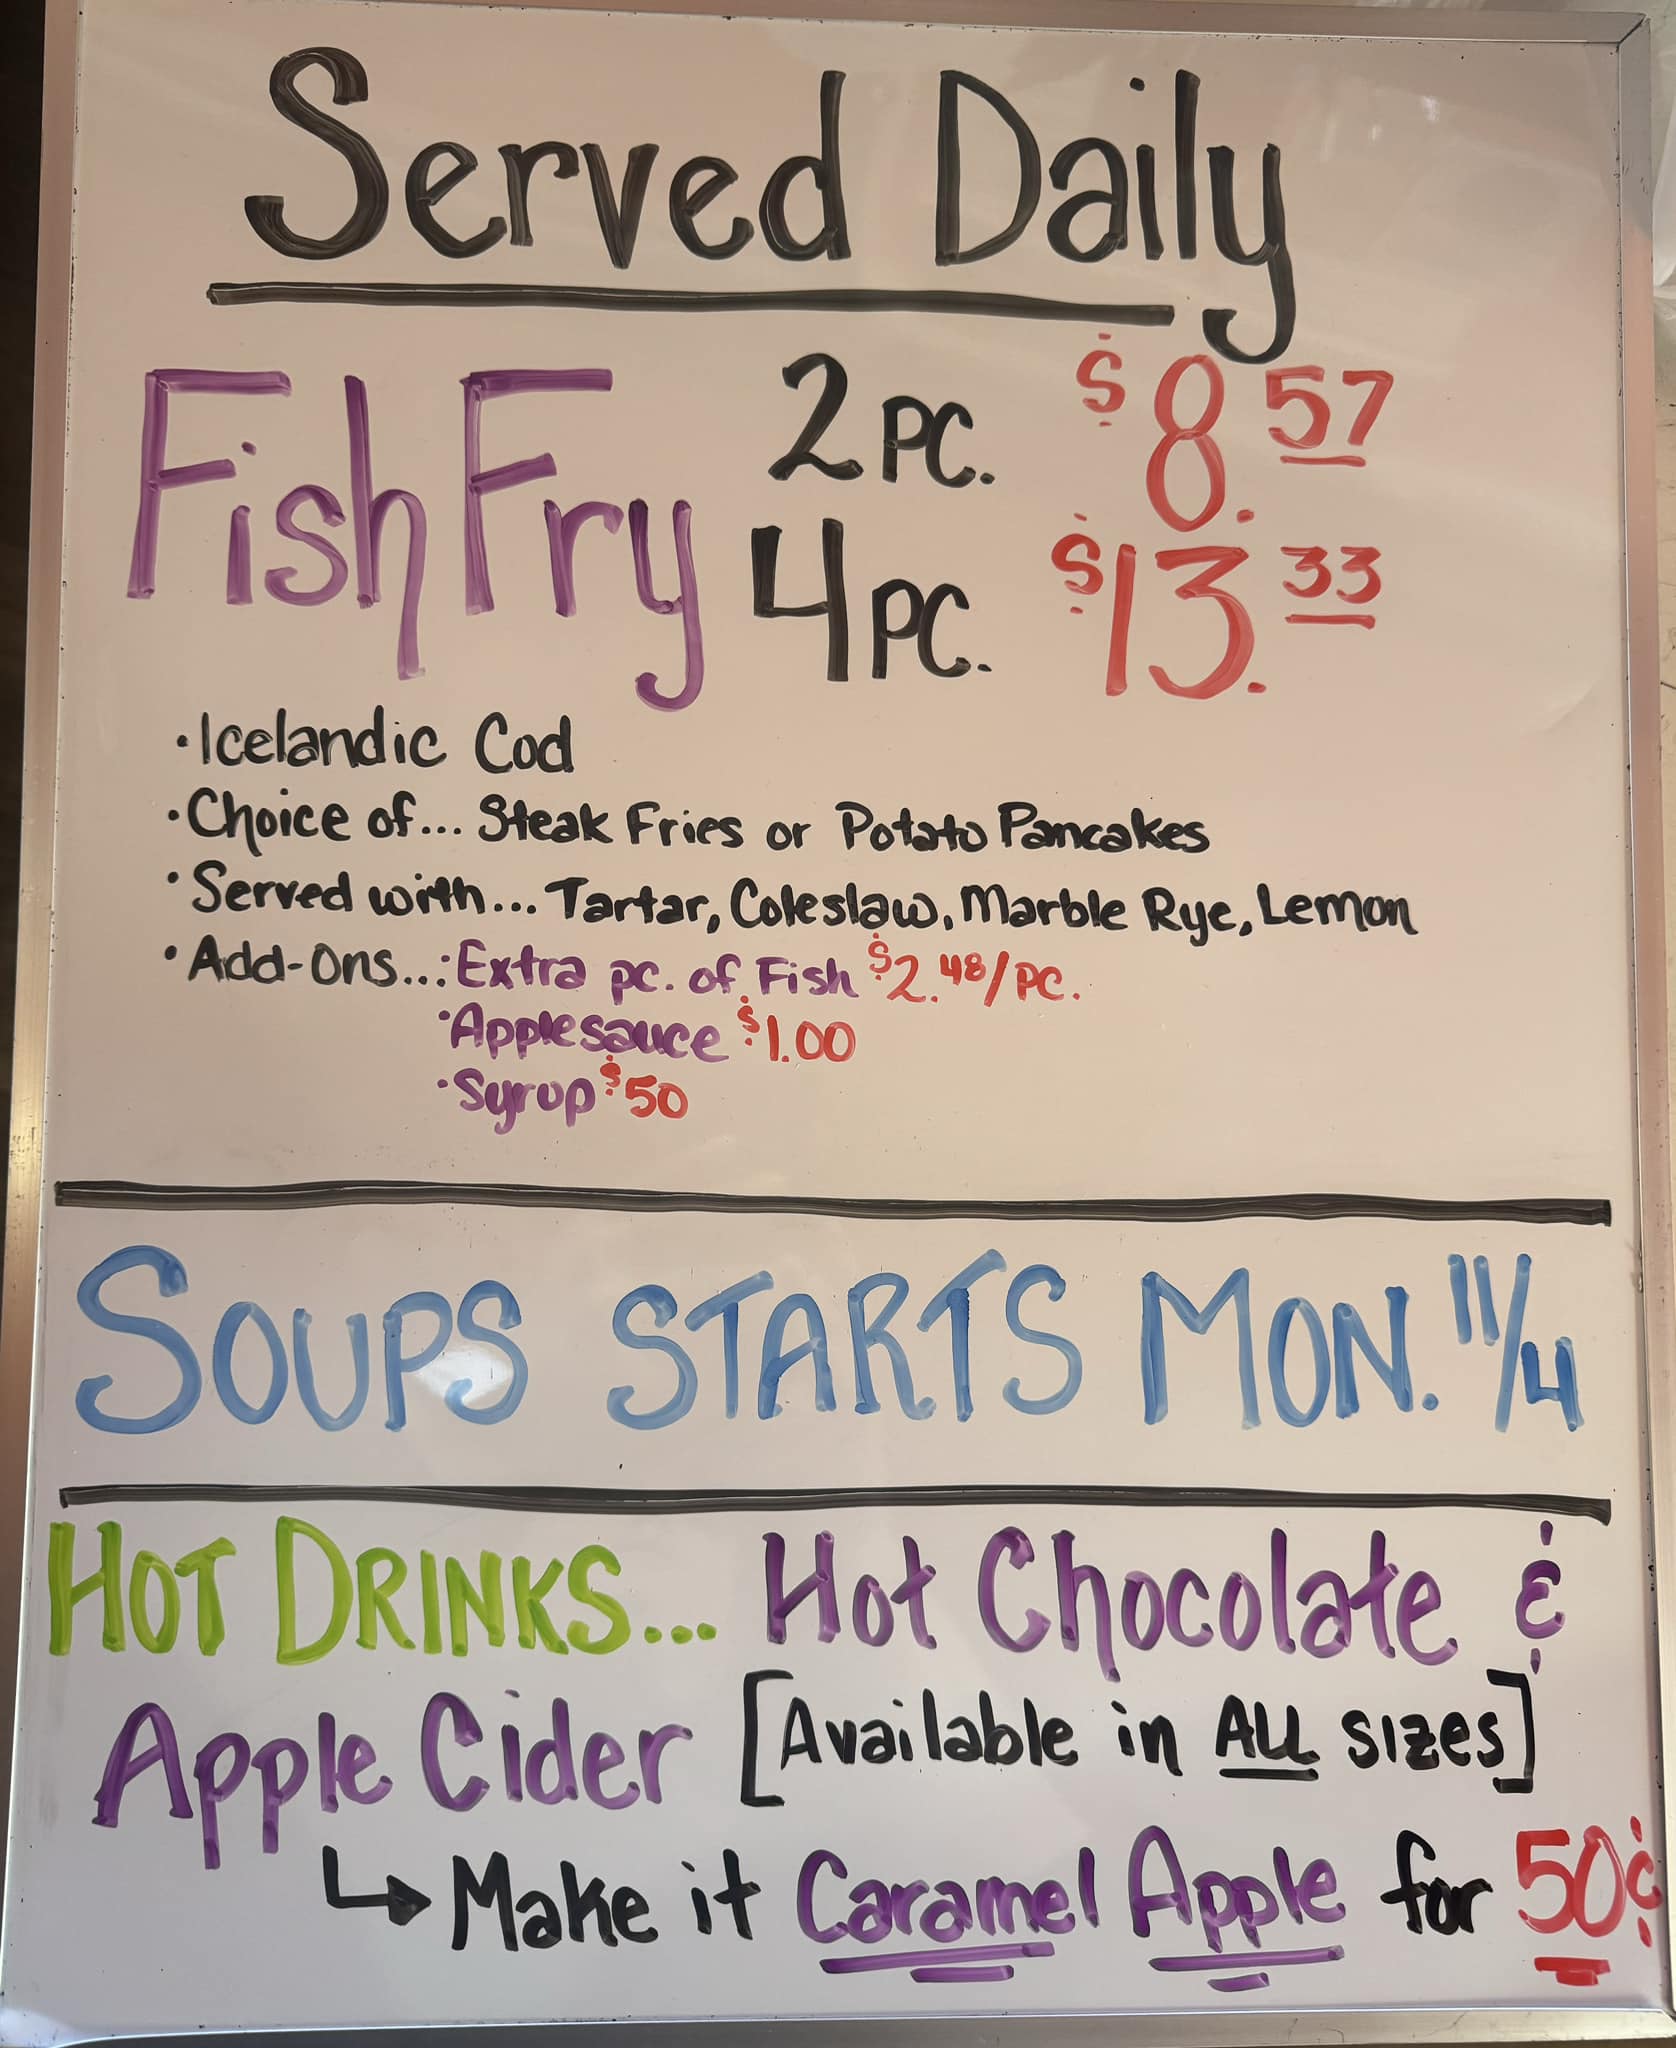 Served Daily
Fish Fry 2 PC. $8.57
4 PC. $13.33
•Icelandic Cod
•Choice of... Steak Fries or Potato Pancakes
•Served with... Tartar, Coleslaw, Marble Rye, Lemon
•Add-Ons...•Extra pc. of Fish $2.48/PC.
•Applesauce $1.00
•Syrup $50
SOUPS STARTS MON. 11/4
HOT DRINKS... Hot Chocolate &
Apple Cider [Available in ALL sizes]
↳ Make it Caramel Apple for 50¢